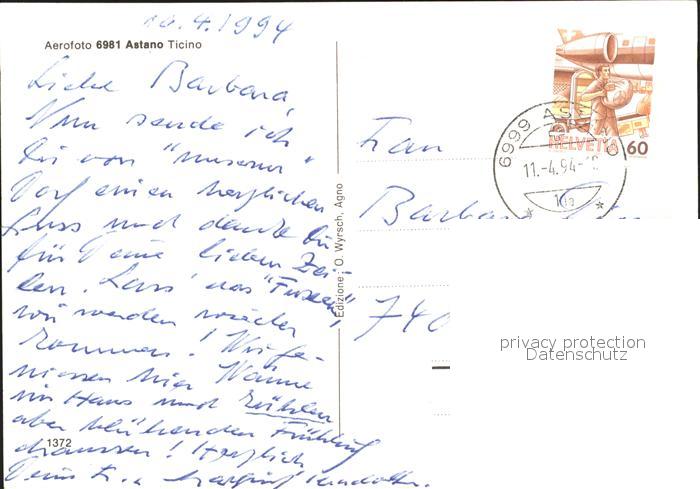 10.4.1994
Aerofoto 6981 Astano Ticino
Liebe Barbara,
Nun sende ich
Dir von "unserm"
Dorf einen herzlichen
Gruss und danke Dir
für Deine lieben Zei-
len. Lass' das "Fragen",
wir werden wieder
kommen! Wir ge-
niessen hier Wärme
im Haus und kühlen
aber blühenden Frühling
draussen! Herzlich
Deine
1372
Edizione: O. Wyrsch, Agno
HELVETIA 60
6999 AS
11.-4.94-
Frau
Barbara
740
privacy protection
Datenschutz